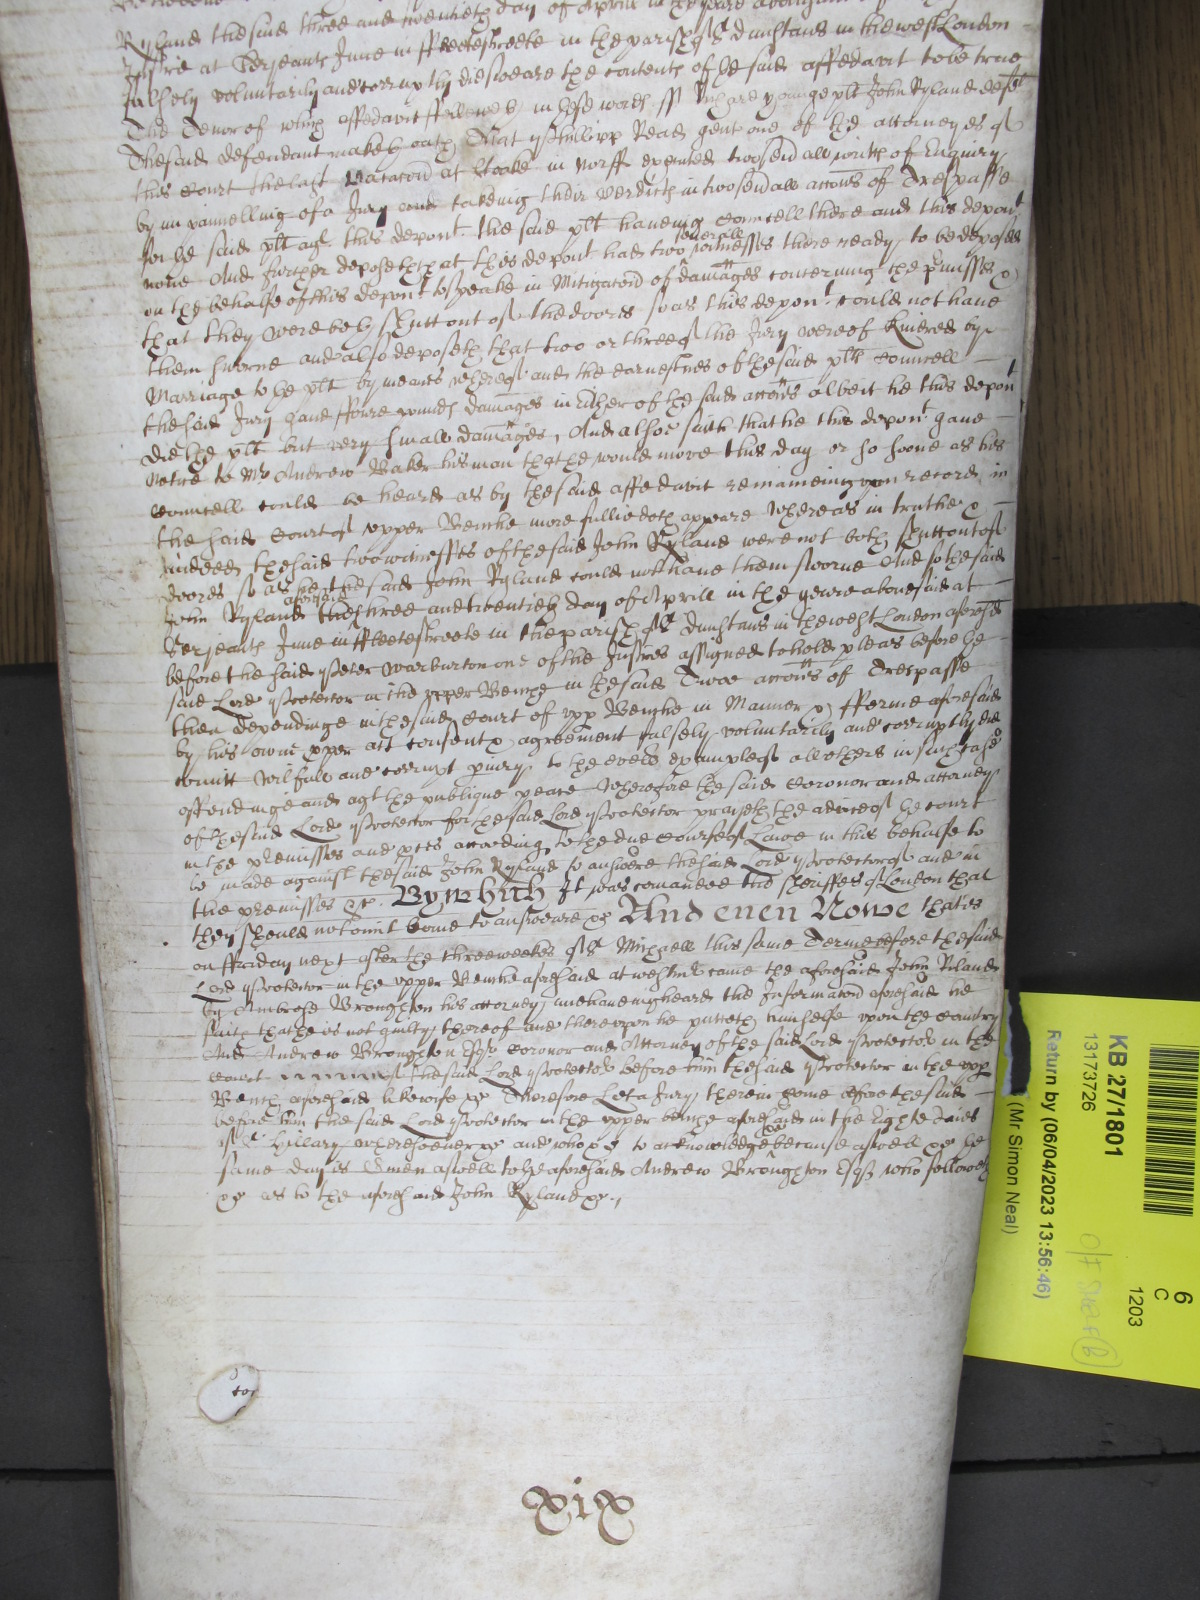 Ryland the said three and twentieth day of Aprill in the yeare
Justice at Serjeants Inne in ffleetestreete in the parish of St Dunstans in the west London
falsely voluntarily and corruptly did sweare the contents of the said affedavit to be true
The Tenor of which affedavit followeth in these words ss Younge plt John Ryland defdt
The said defendant maketh oath That Phillipp Read gent one of the attorneyes of
this Court the last Vacacon at in Norff executed two sevall writts of Enquiry
by impannelling of a Jury and takeing their verdicts in two sevall accons of Trespasse
for the said plt agt this depont the said plt haveing Councell there and this depont
none And further deposeth that this depont had two severall witnesses there ready to be deposed
on the behalfe of this depont to speake in Mitigacon of damages concerning the pmisses &
that they were both shutt out of the doores soe as this depont could not have
them sworne and also deposeth that two or three of the Jury were of Kindred by
Marriage to the plt by meanes whereof and the earnestnes of the said plts Councell
the said Jury gave ffoure pounds damages in either of the said accons albeit he this depont
did the plt but very small damages, And alsoe saith that he this depont gave
notice to Mr Andrew Baker his man that he would move this day or so soone as his
Councell could be heard as by the said affedavit remaineing upon record in
the said Court of upper Benche more fullie doth appeare Whereas in truthe &
indeed the said two witnesses of the said John Ryland were not both shutt out of
doores so as he the said John Ryland could not have them sworne And so the said
John Ryland aforesaid the three and twentieth day of Aprill in the yeare abovesaid at
Serjeants Inne in ffleetestreete in the parish of St Dunstans in the west London aforesd
before the said Peter Warburton one of the Justices assigned to hold pleas before the
said Lord Protector in the upper Benche in the said Twoe accons of Trespasse
then dependinge in the said Court of upp Benche in Manner & fforme aforesaid
by his owne pper act consent & agreement falsely voluntarily and corruptly did
comitt wilfull and corrupt piury to the evell example of all others in such case
offendinge and agt the publique peace Wherefore the said Coronor and attorney
of the said Lord Protector for the said Lord Protector prayeth the advice of the Court
in the premisses and pces according to the due course of Lawe in this behalfe to
be made against the said John Ryland to answere the said Lord Protector of and in
the premisses &c. By which It was comanded the Sheriffes of London that
they should not omit &c to answeare &c And even Nowe that is
on ffriday next after the three weekes of St Michaell this same Terme before the said
Lord Protector in the upper Benche aforesaid at Westmr came the aforesaid John Rylande
By Ambrose Broughton his attorney and haveing heard the Informacon aforesaid he
saith that he is not guilty thereof and thereupon he putteth himselfe upon the Country
And Andrew Broughton Esqr Coronor and Attorney of the said Lord Protector in the
Court of the said Lord Protector before him the said Protector in the upp
Bench aforesaid likewise &c Therefore Let a Jury therein come before the said
before him the said Lord Protector in the upper benche aforesaid in the Eight daies
of St Hillary wheresoever &c and who &c to acknowledge &c because aswell &c the
same day is given aswell to the aforesaid Andrew Broughton Esqr who followeth
&c as to the aforesaid John Ryland &c.
xix
KB 27/1801
13173726
Return by (06/04/2023 13:56:46)
(Mr Simon Neal)
6
C
1203